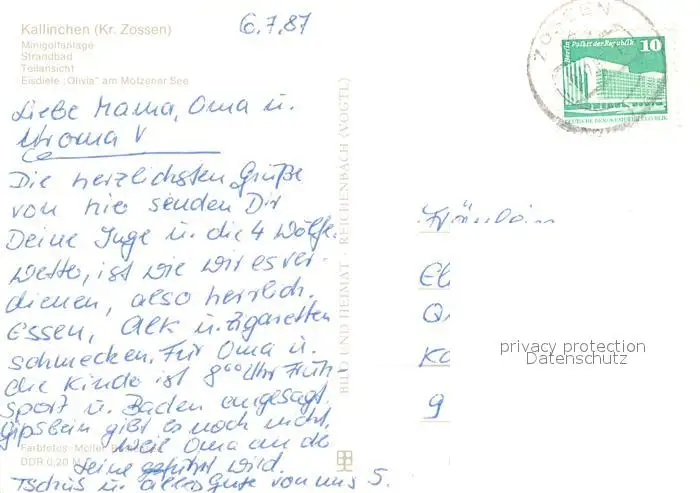 Kallinchen (Kr. Zossen)
Minigolfanlage
Strandbad
Teilansicht
Eisdiele „Olivia" am Motzener See
6.7.87
ZOSSEN
Berlin Palast der Republik 10
DEUTSCHE DEMOKRATISCHE REPUBLIK
Liebe Mama, Oma u.
Uroma V
Die herzlichsten Grüße
von hier senden Dir
Deine Inge u. die 4 Wölfe.
Wetter, ist wie wir es ver-
dienen, also herrlich.
Essen, Alk u. Zigaretten
schmecken. Für Oma u.
die Kinder ist 8⁰⁰ Uhr Früh-
sport u. Baden angesagt.
Gipsbein gibt es noch nicht,
weil Oma an der
Leine geführt wird.
Tschüs u. alles Gute von uns 5.
BILD UND HEIMAT · REICHENBACH (VOGTL)
Farbfotos: Müller
DDR 0,20 M
Fräulein
El
Q
Ko
9
privacy protection
Datenschutz